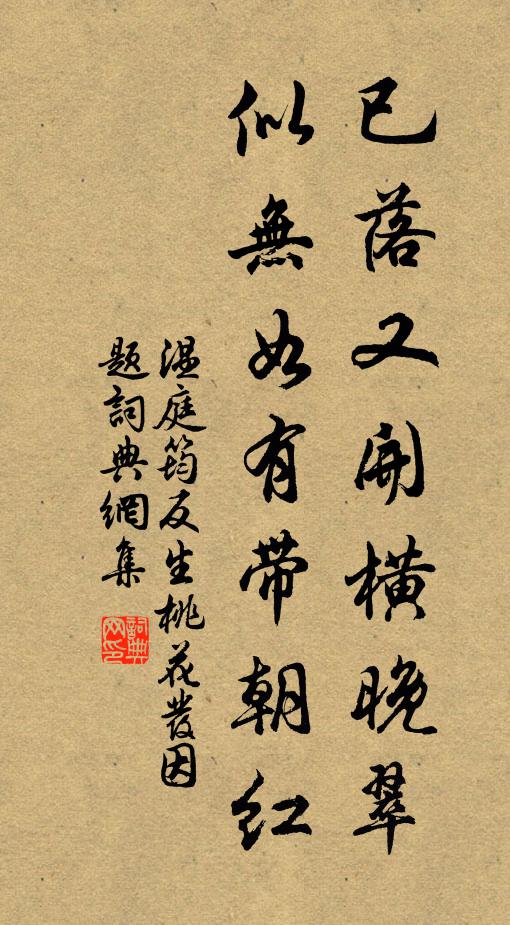 已落又開橫晚翠
似無如有帶朝紅
溫庭筠反生桃花發因
題詞典網集
詞典網印